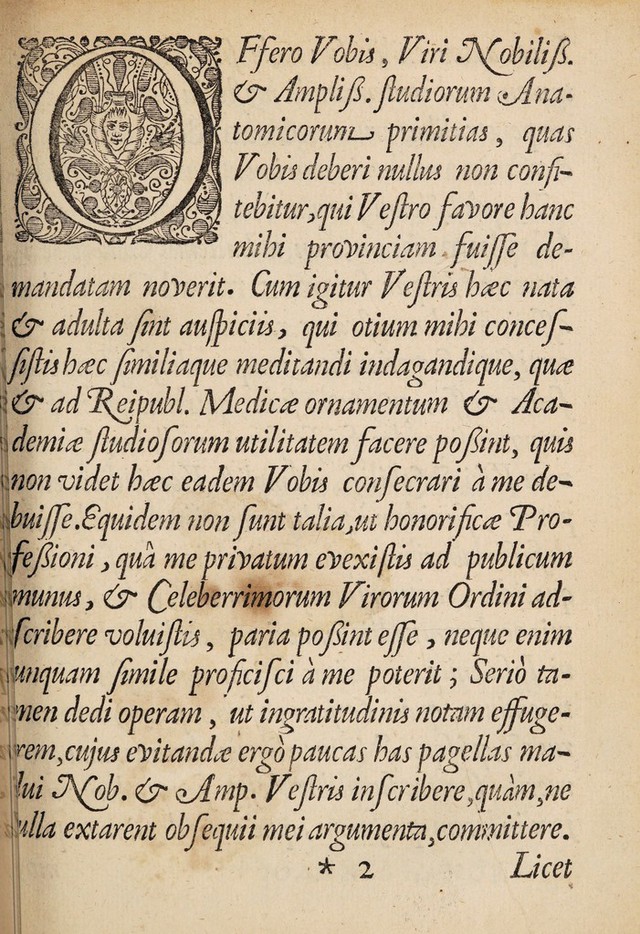 OFfero Vobis, Viri Nobiliß.
& Ampliß. ſtudiorum Ana-
tomicorum primitias, quas
Vobis deberi nullus non confi-
tebitur, qui Veſtro favore hanc
mihi provinciam fuiſſe de-
mandatam noverit. Cum igitur Veſtris hæc nata
& adulta ſint auſpiciis, qui otium mihi conceſ-
ſiſtis hæc ſimiliaque meditandi indagandique, quæ
& ad Reipubl. Medicæ ornamentum & Aca-
demiæ ſtudioſorum utilitatem facere poßint, quis
non videt hæc eadem Vobis conſecrari à me de-
buiſſe. Equidem non ſunt talia, ut honorificæ Pro-
feßioni, quâ me privatum evexiſtis ad publicum
munus, & Celeberrimorum Virorum Ordini ad-
ſcribere voluiſtis, paria poßint eſſe, neque enim
unquam ſimile proficiſci à me poterit; Seriò ta-
men dedi operam, ut ingratitudinis notam effuge-
rem, cujus evitandæ ergò paucas has pagellas ma-
lui Nob. & Amp. Veſtris inſcribere, quàm, ne
ulla extarent obſequii mei argumenta, committere.
* 2 Licet